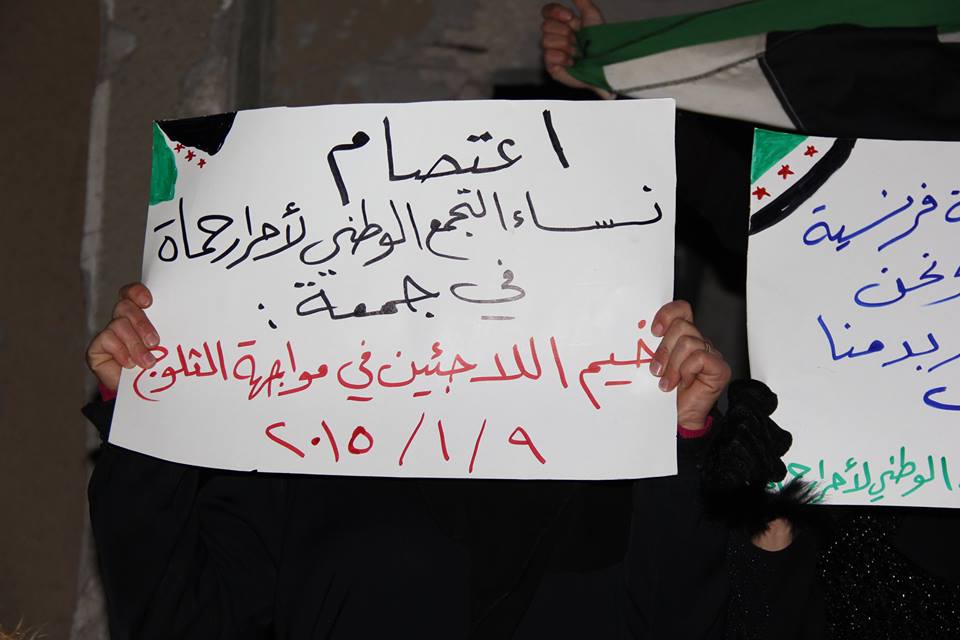 اعتصام
نساء التجمع الوطني لأحرار حماة
في جمعة :
خيم اللاجئين في مواجهة الثلوج
٢٠١٥/١/٩
فرنسية
ونحن
منا
الوطني لأحرار